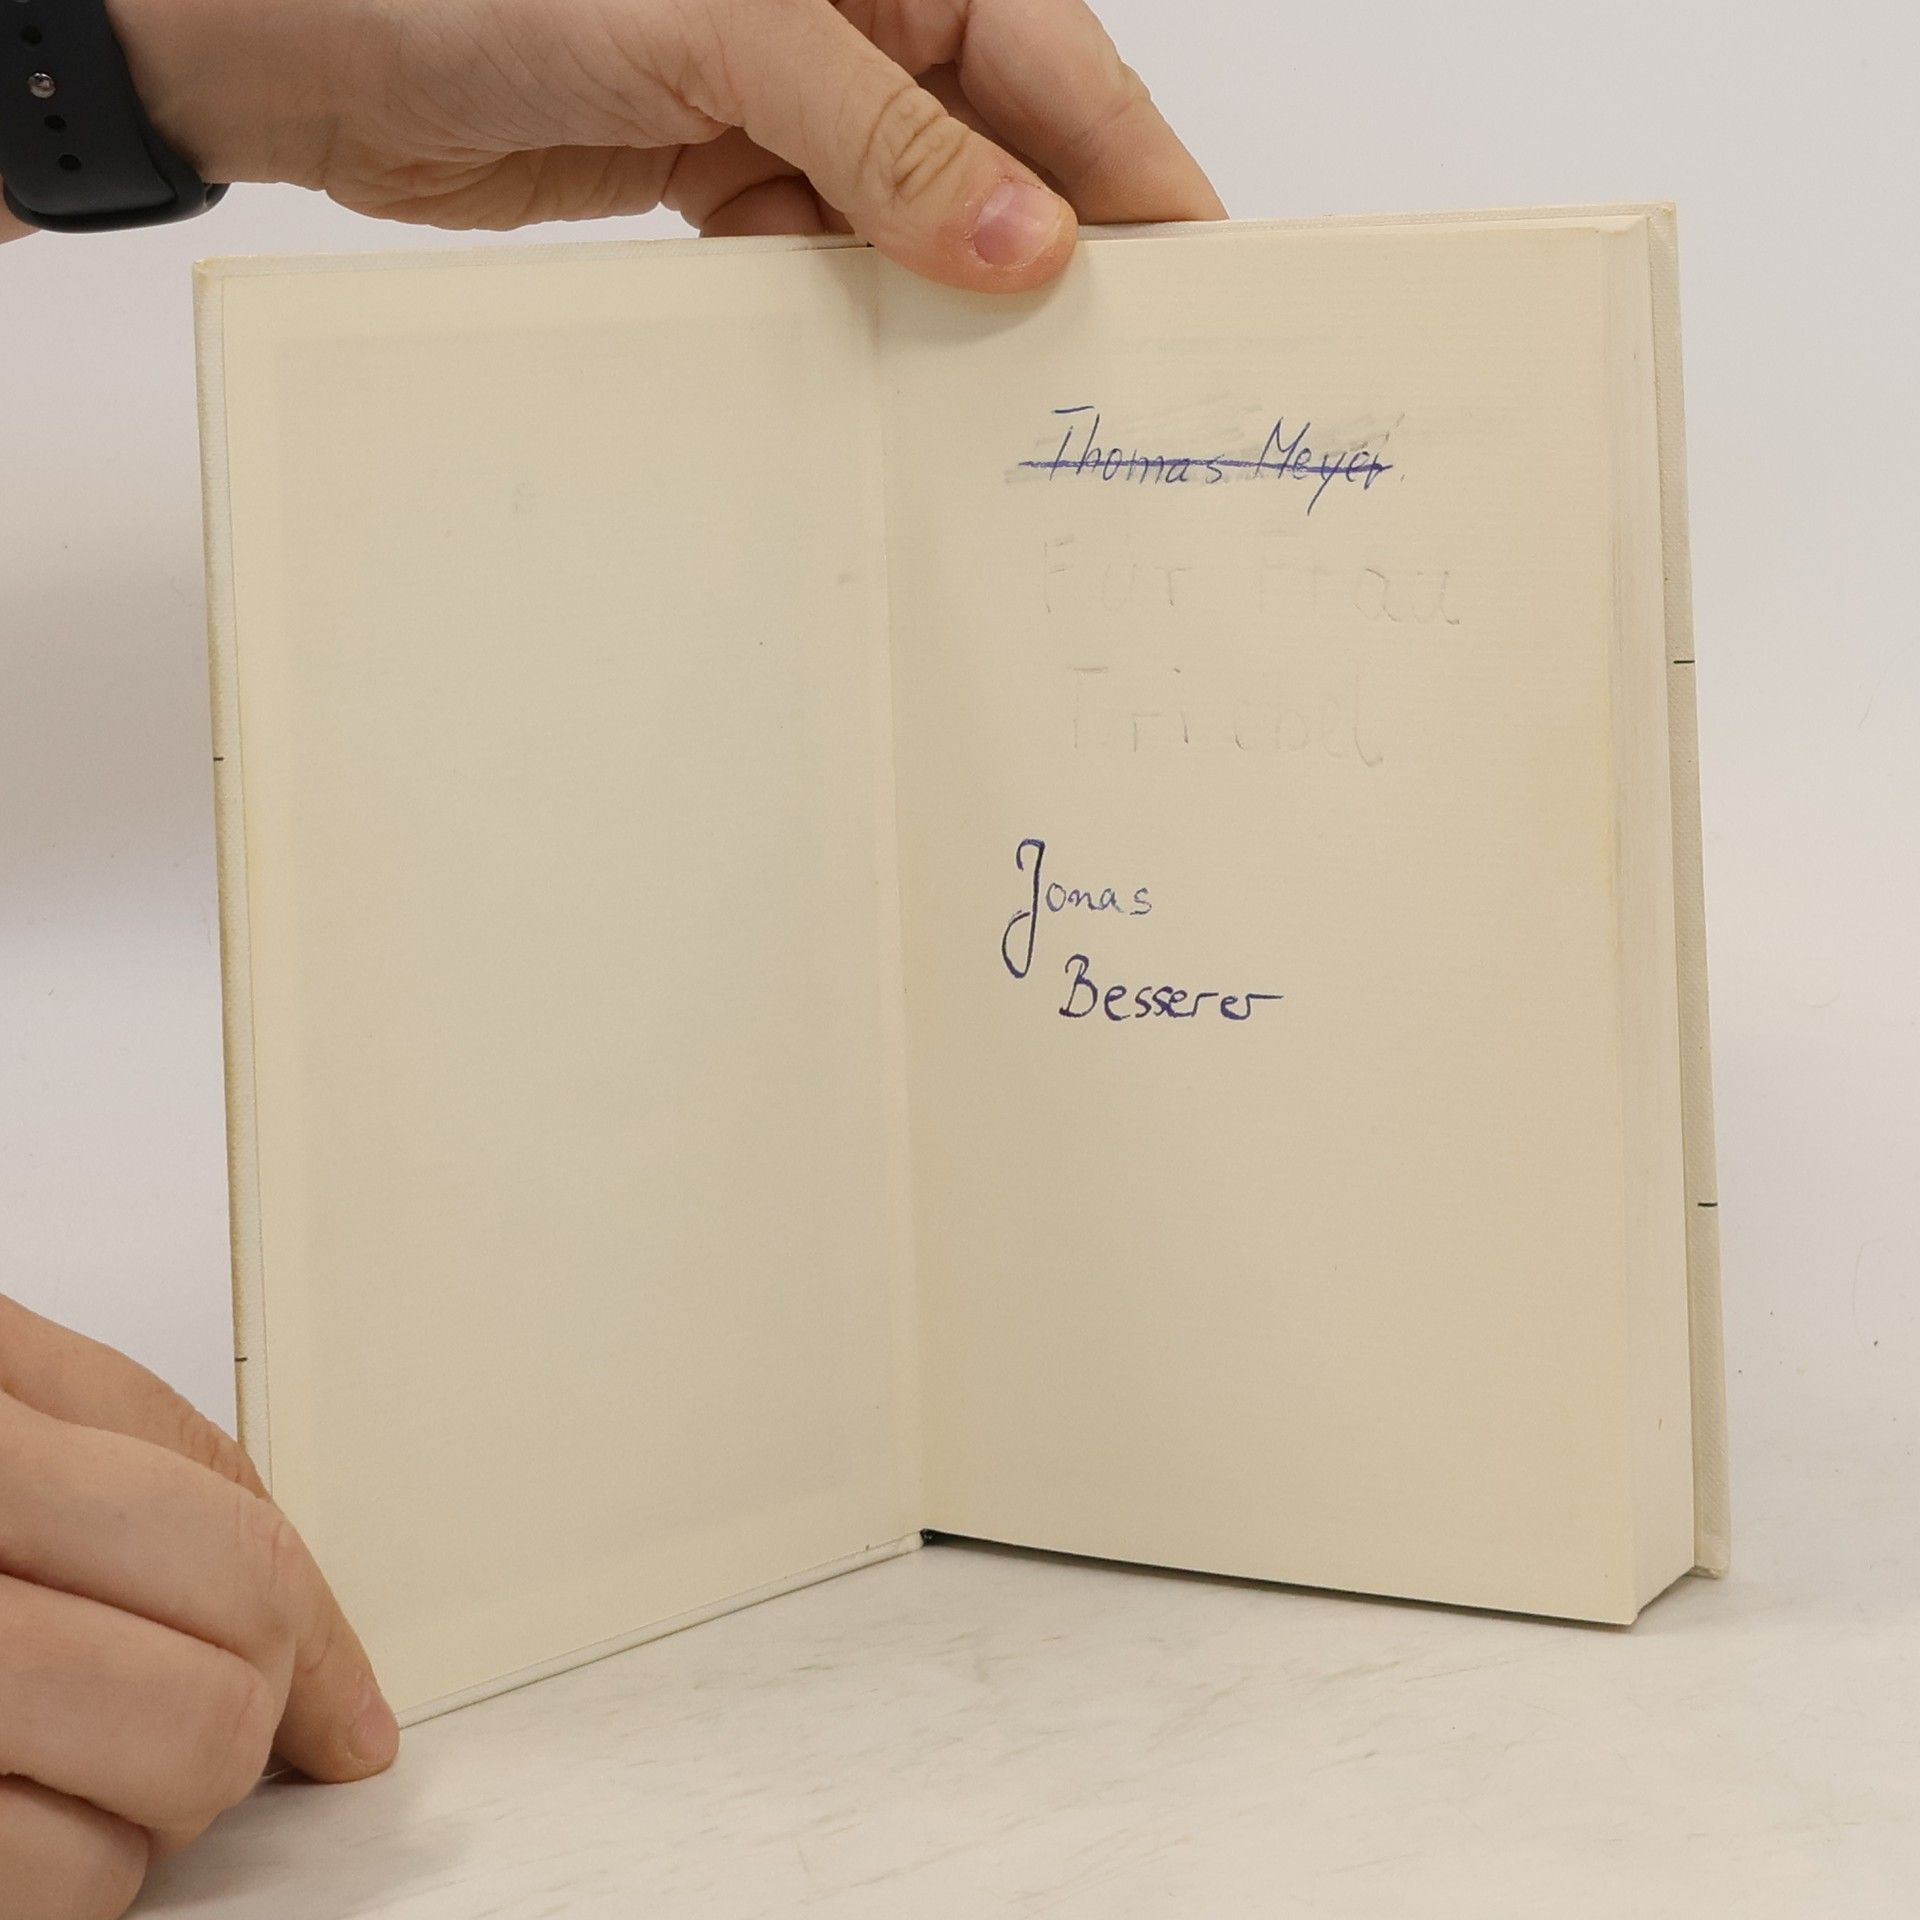 Thomas Meyer.
Für Frau
Triebel
Jonas
Besserer